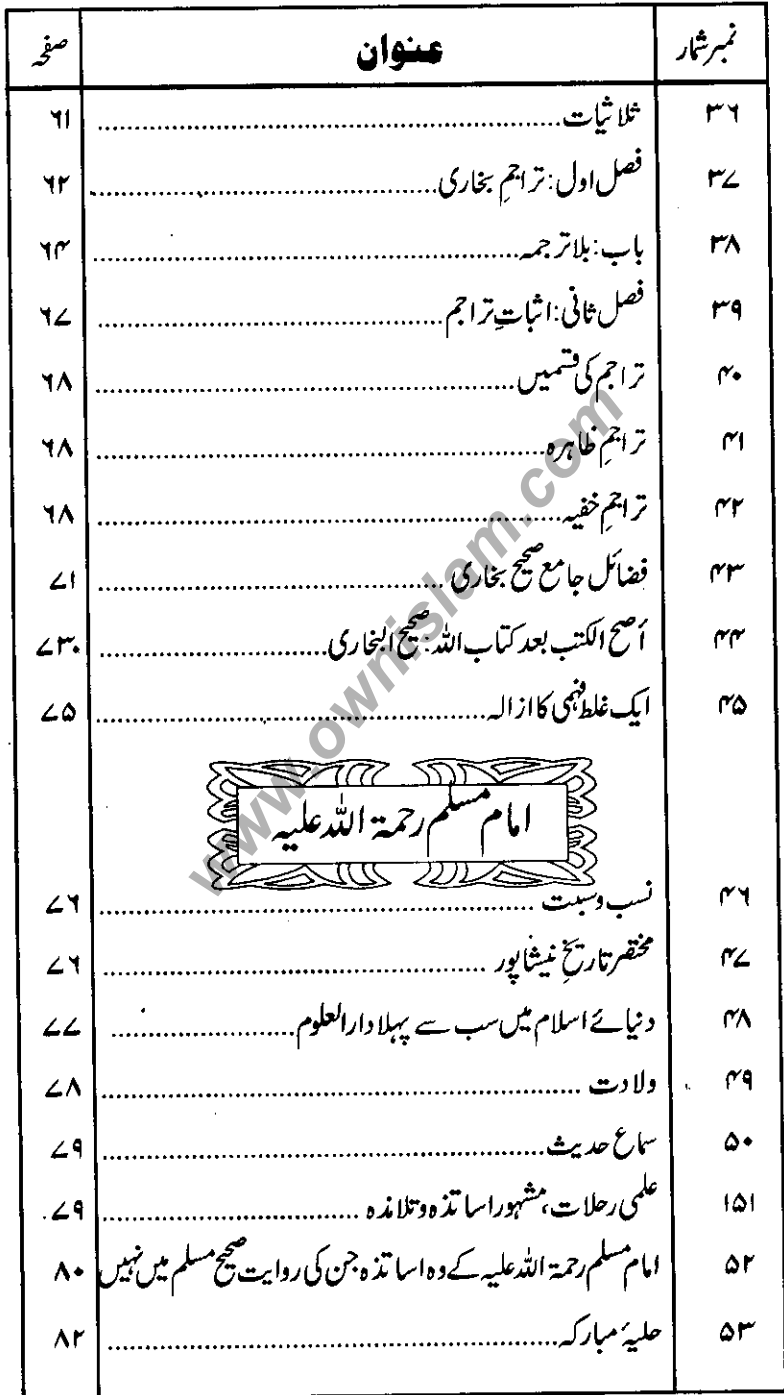 نمبر شمار عنوان صفحہ
۳۶ ثلاثیات ........ ۶۱
۳۷ فصل اول: تراجمِ بخاری ........ ۶۲
۳۸ باب: بلا ترجمہ ........ ۶۴
۳۹ فصل ثانی: اثباتِ تراجم ........ ۶۷
۴۰ تراجم کی قسمیں ........ ۶۸
۴۱ تراجمِ ظاہرہ ........ ۶۸
۴۲ تراجمِ خفیہ ........ ۶۸
۴۳ فضائل جامع صحیح بخاری ........ ۷۱
۴۴ أصح الکتب بعد کتاب اللہ: صحیح البخاری ........ ۷۳
۴۵ ایک غلط فہمی کا ازالہ ........ ۷۵
امام مسلم رحمۃ اللہ علیہ
۴۶ نسب وسبت ........ ۷۶
۴۷ مختصر تاریخِ نیشاپور ........ ۷۶
۴۸ دنیائے اسلام میں سب سے پہلا دارالعلوم ........ ۷۷
۴۹ ولادت ........ ۷۸
۵۰ سماع حدیث ........ ۷۹
۱۵۱ علمی رحلات، مشہور اساتذہ وتلامذہ ........ ۷۹
۵۲ امام مسلم رحمۃ اللہ علیہ کے وہ اساتذہ جن کی روایت صحیح مسلم میں نہیں ۸۰
۵۳ حلیۂ مبارکہ ........ ۸۲
www.ownislam.com